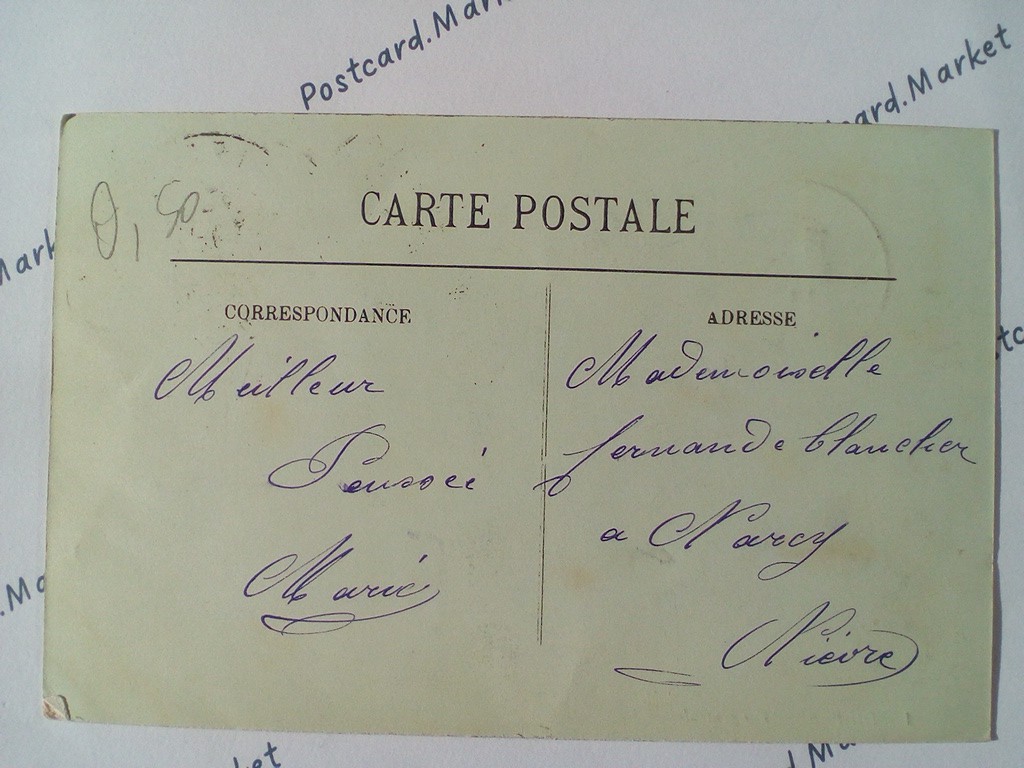 Postcard.Mark
card.Market
CARTE POSTALE
0,50-
CORRESPONDANCE
Meilleur
Pensoeé
Marie
ADRESSE
Mademoiselle
fernande blancher
a Narcy
Nièvre